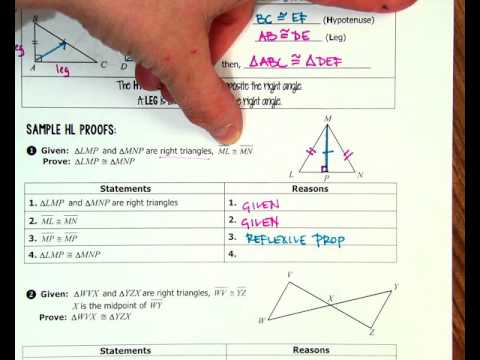 BC ≅ EF (Hypotenuse)
AB ≅ DE (Leg)
B
A
C
leg
then, △ABC ≅ △DEF
the right angle.
A LEG is
the right angle.
SAMPLE HL PROOFS:
1 Given: ΔLMP and ΔMNP are right triangles, ML ≅ MN
Prove: ΔLMP ≅ ΔMNP
M
L
P
N
Statements Reasons
1. ΔLMP and ΔMNP are right triangles 1. GIVEN
2. ML ≅ MN 2. GIVEN
3. MP ≅ MP 3. REFLEXIVE PROP
4. ΔLMP ≅ ΔMNP 4.
2 Given: ΔWVX and ΔYZX are right triangles, WV ≅ YZ
X is the midpoint of WY
Prove: ΔWVX ≅ ΔYZX
V
Y
X
W
Z
Statements Reasons